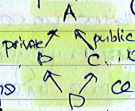 A
private public
B C
D